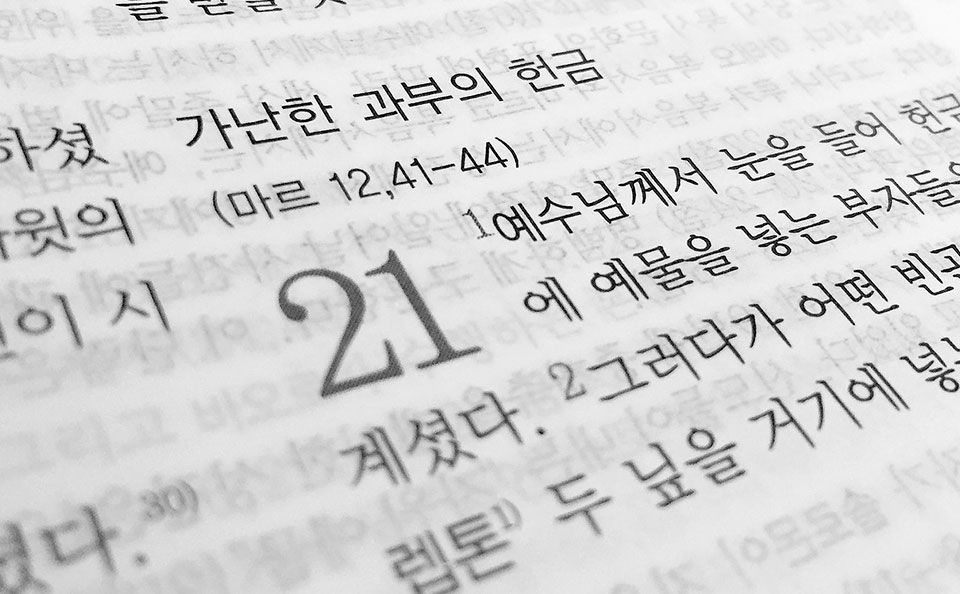 하셨
윗의
이 시
셨다.30)
가난한 과부의 헌금
(마르 12,41-44)
21
1예수님께서 눈을 들어 헌금
에 예물을 넣는 부자들을
계셨다. 2그러다가 어떤 빈
렙톤1) 두 닢을 거기에 넣는